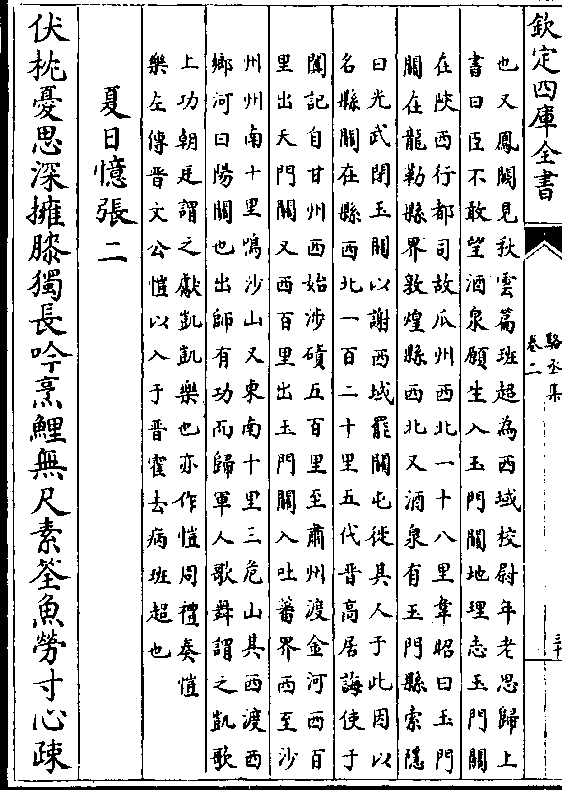 欽定四庫全書
駱丞集
卷二
三十
也又鳳闕見秋雲篇班超為西域校尉年老思歸上
書曰臣不敢望酒泉願生入玉門關地理志玉門關
在陜西行都司故瓜州西北一十八里韋昭曰玉門
關在龍勒縣界敦煌縣西北又酒泉有玉門縣索隱
曰光武閉玉關以謝西域罷關屯徙其人于此因以
名縣關在縣西北一百二十里五代晉高居誨使于
闐記自甘州西始涉磧五百里至肅州渡金河西百
里出天門關又西百里出玉門關入吐蕃界西至沙
州州南十里鳴沙山又東南十里三危山其西渡西
鄉河曰陽關也出師有功而歸軍人歌舞謂之凱歌
上功朝廷謂之獻凱凱樂也亦作愷周禮奏愷
樂左傳晉文公愷以入于晉霍去病班超也
夏日憶張二
伏枕憂思深擁膝獨長吟烹鯉無尺素筌魚勞寸心疎